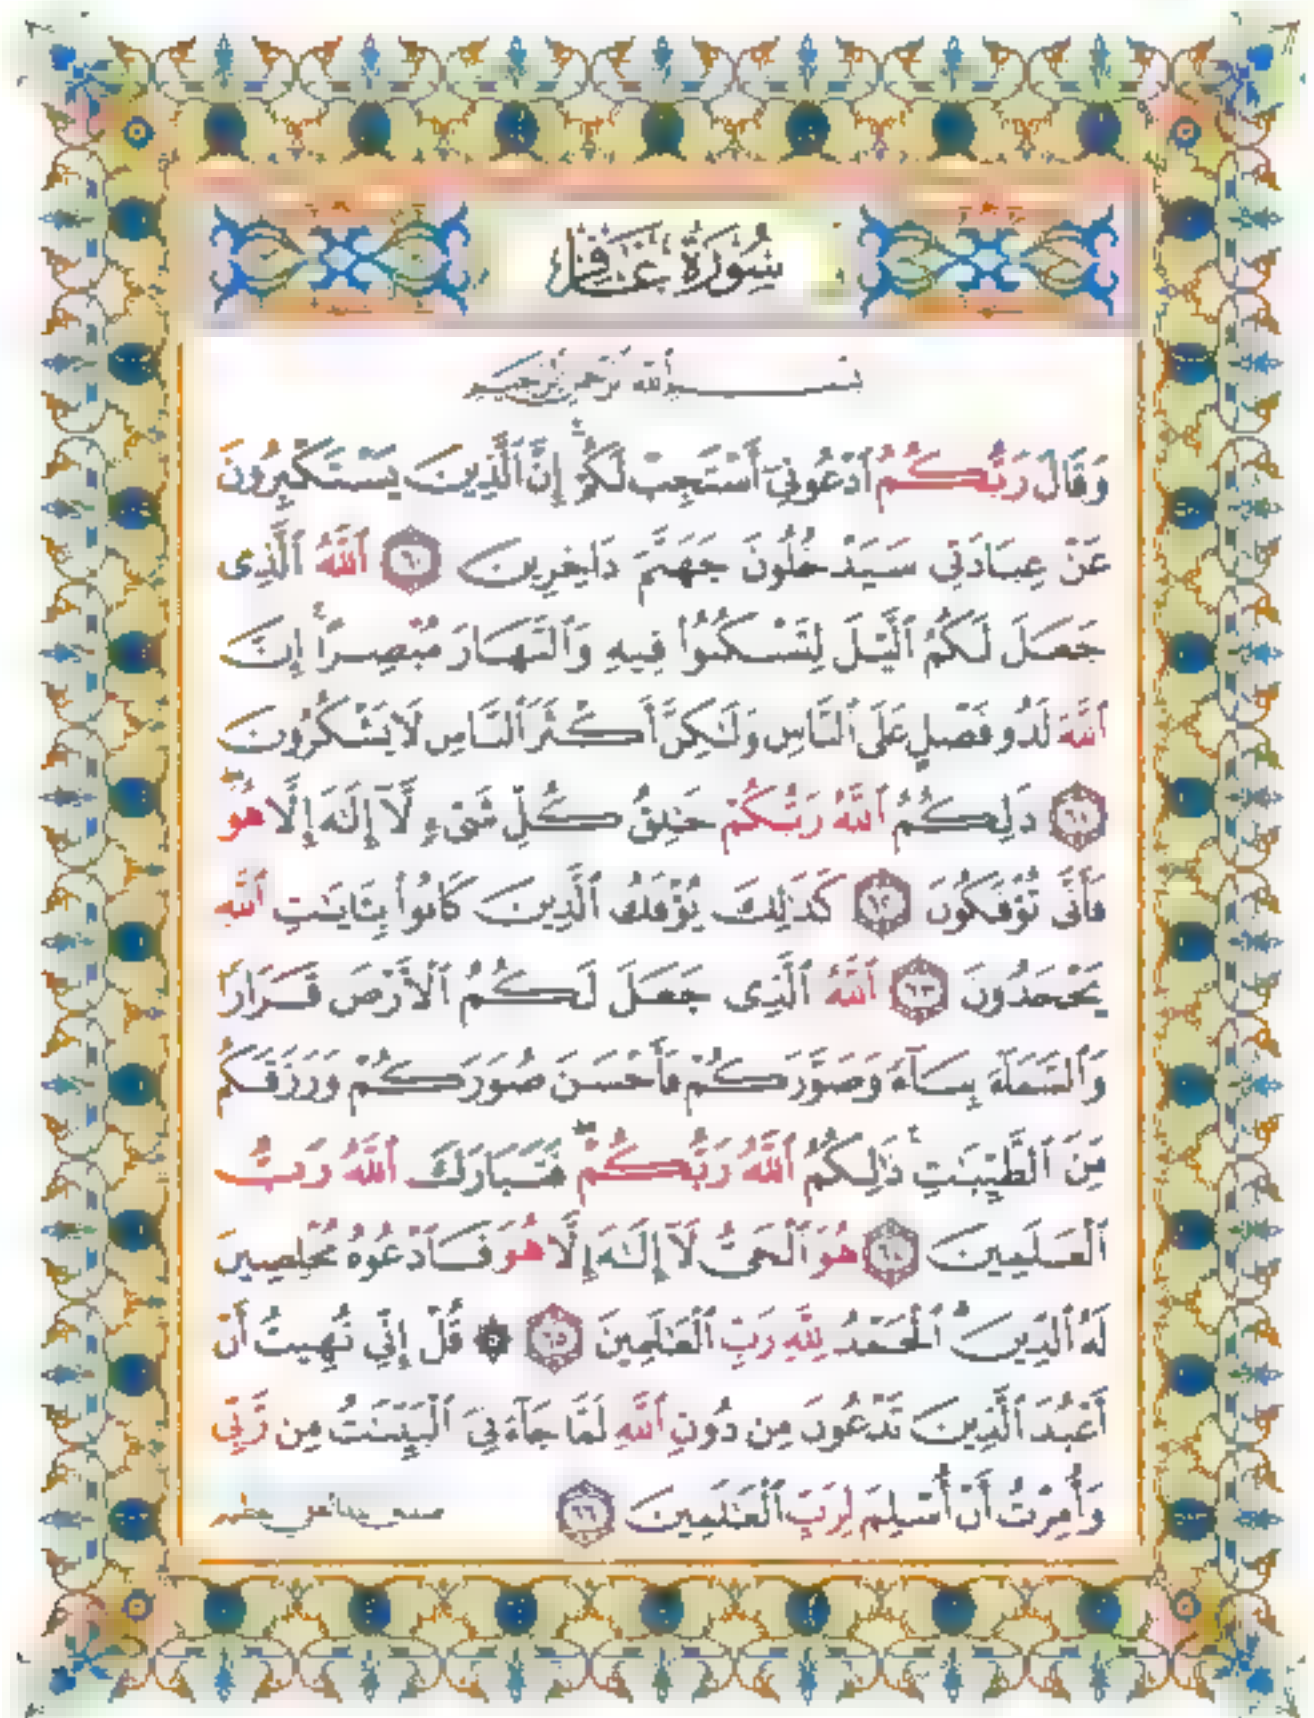 سُورَةُ غَافِر
بِسْمِ ٱللَّهِ ٱلرَّحْمَٰنِ ٱلرَّحِيمِ
وَقَالَ رَبُّكُمُ ٱدْعُونِىٓ أَسْتَجِبْ لَكُمْ ۚ إِنَّ ٱلَّذِينَ يَسْتَكْبِرُونَ
عَنْ عِبَادَتِى سَيَدْخُلُونَ جَهَنَّمَ دَاخِرِينَ ٦٠ ٱللَّهُ ٱلَّذِى
جَعَلَ لَكُمُ ٱلَّيْلَ لِتَسْكُنُوا۟ فِيهِ وَٱلنَّهَارَ مُبْصِرًا ۚ إِنَّ
ٱللَّهَ لَذُو فَضْلٍ عَلَى ٱلنَّاسِ وَلَٰكِنَّ أَكْثَرَ ٱلنَّاسِ لَا يَشْكُرُونَ
٦١ ذَٰلِكُمُ ٱللَّهُ رَبُّكُمْ خَٰلِقُ كُلِّ شَىْءٍ لَّآ إِلَٰهَ إِلَّا هُوَ ۖ
فَأَنَّىٰ تُؤْفَكُونَ ٦٢ كَذَٰلِكَ يُؤْفَكُ ٱلَّذِينَ كَانُوا۟ بِـَٔايَٰتِ ٱللَّهِ
يَجْحَدُونَ ٦٣ ٱللَّهُ ٱلَّذِى جَعَلَ لَكُمُ ٱلْأَرْضَ قَرَارًا
وَٱلسَّمَآءَ بِنَآءً وَصَوَّرَكُمْ فَأَحْسَنَ صُوَرَكُمْ وَرَزَقَكُم
مِّنَ ٱلطَّيِّبَٰتِ ۚ ذَٰلِكُمُ ٱللَّهُ رَبُّكُمْ ۖ فَتَبَارَكَ ٱللَّهُ رَبُّ
ٱلْعَٰلَمِينَ ٦٤ هُوَ ٱلْحَىُّ لَآ إِلَٰهَ إِلَّا هُوَ فَٱدْعُوهُ مُخْلِصِينَ
لَهُ ٱلدِّينَ ۗ ٱلْحَمْدُ لِلَّهِ رَبِّ ٱلْعَٰلَمِينَ ٦٥ ۞ قُلْ إِنِّى نُهِيتُ أَنْ
أَعْبُدَ ٱلَّذِينَ تَدْعُونَ مِن دُونِ ٱللَّهِ لَمَّا جَآءَنِىَ ٱلْبَيِّنَٰتُ مِن رَّبِّى
وَأُمِرْتُ أَنْ أُسْلِمَ لِرَبِّ ٱلْعَٰلَمِينَ ٦٦